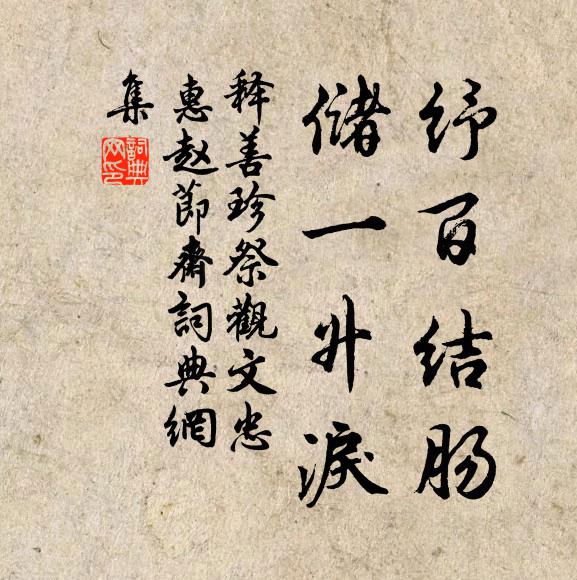 纾百结肠
储一升淚
释善珍祭觀文忠
惠赵節齋詞典網
集
詞典網印